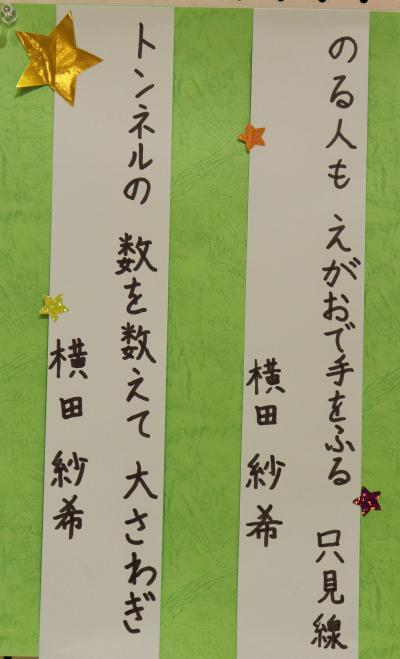 のる人も えがおで手をふる 只見線
横田 紗希
トンネルの 数を数えて 大さわぎ
横田 紗希